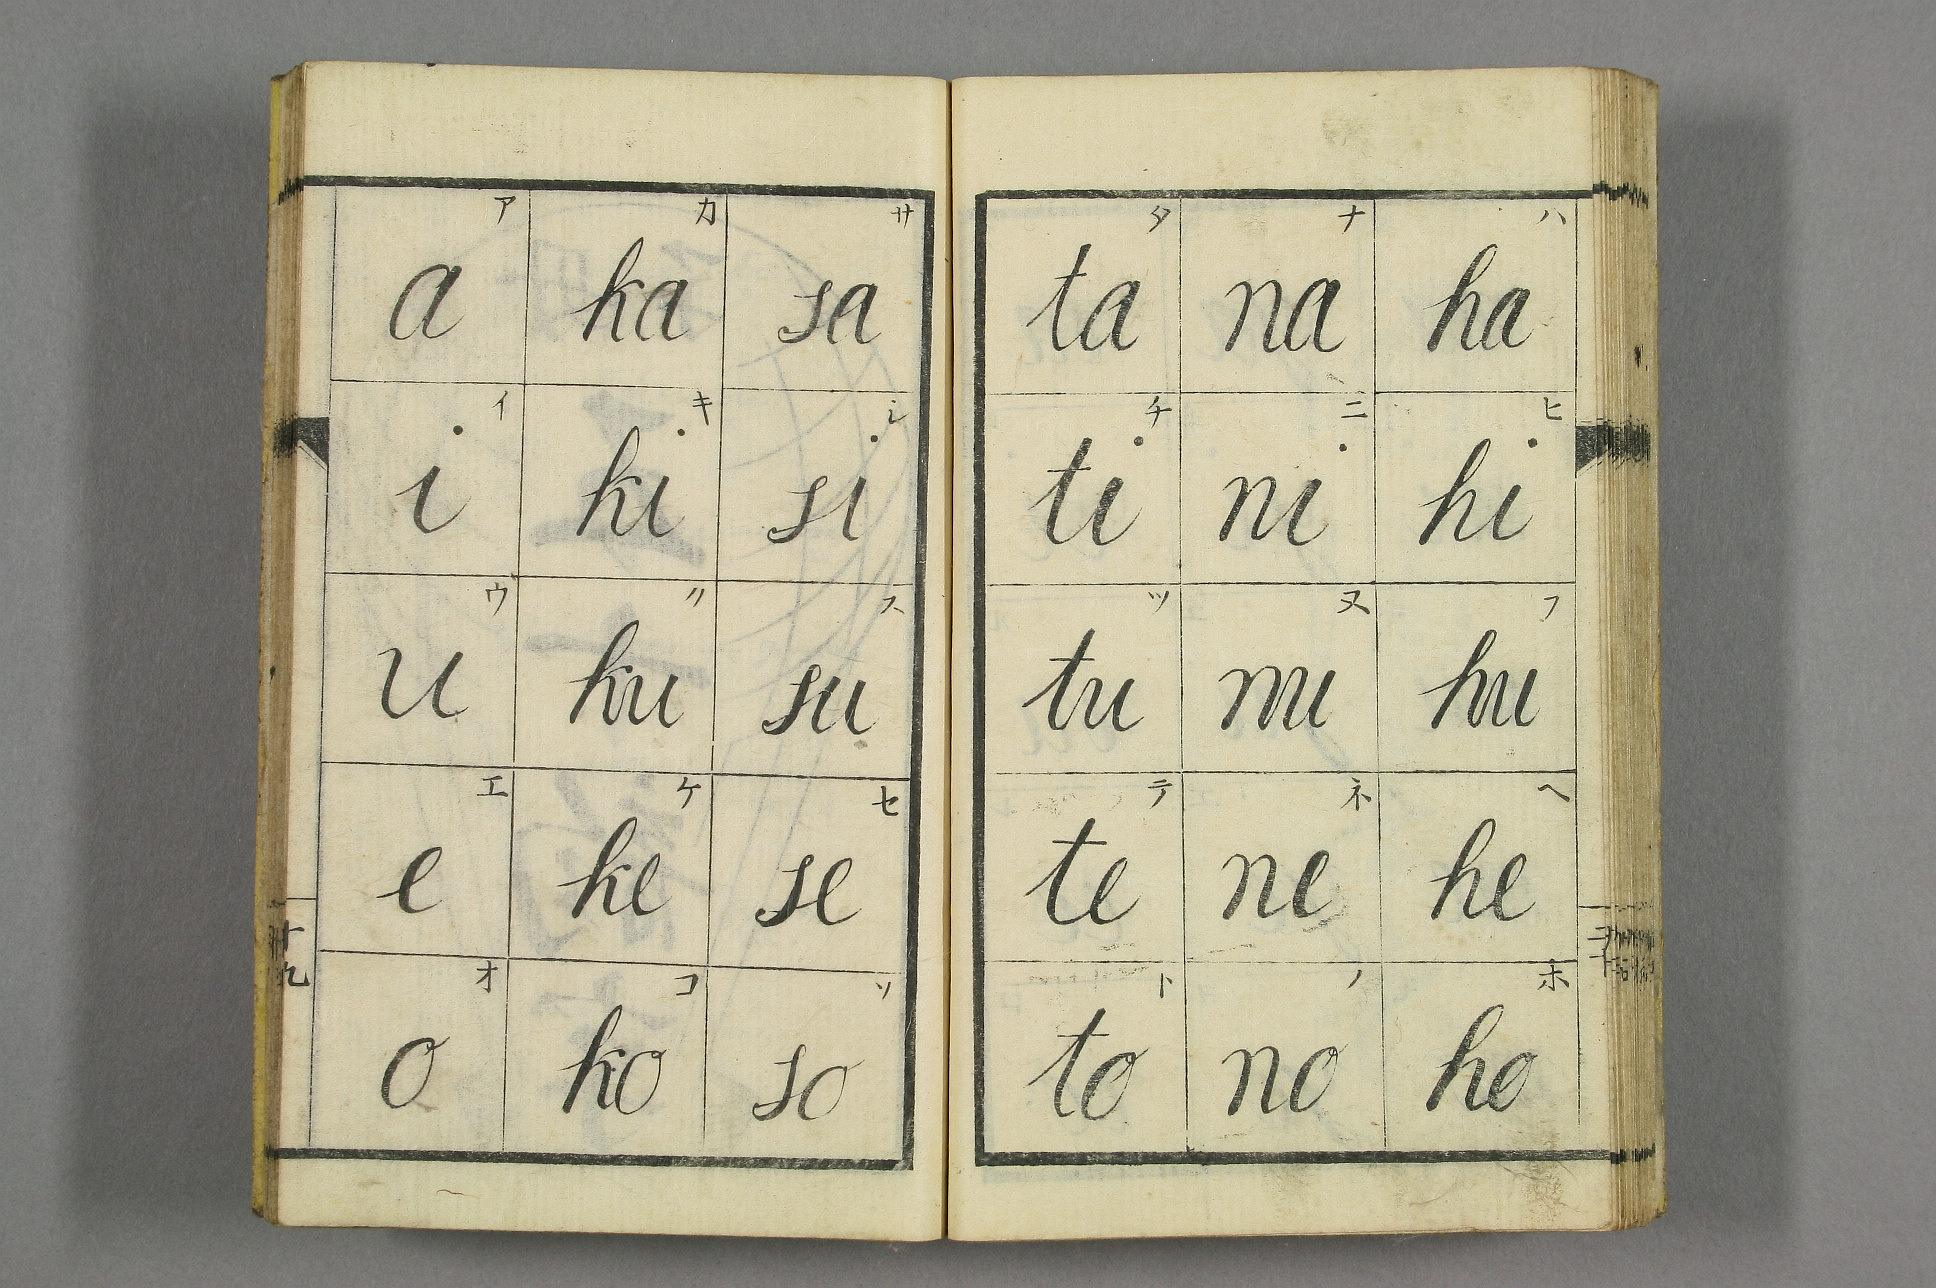 ア カ サ
a ka sa
イ キ シ
i ki si
ウ ク ス
u ku su
エ ケ セ
e ke se
オ コ ソ
o ko so
十九
タ ナ ハ
ta na ha
チ ニ ヒ
ti ni hi
ツ ヌ フ
tu nu hu
テ ネ ヘ
te ne he
ト ノ ホ
to no ho